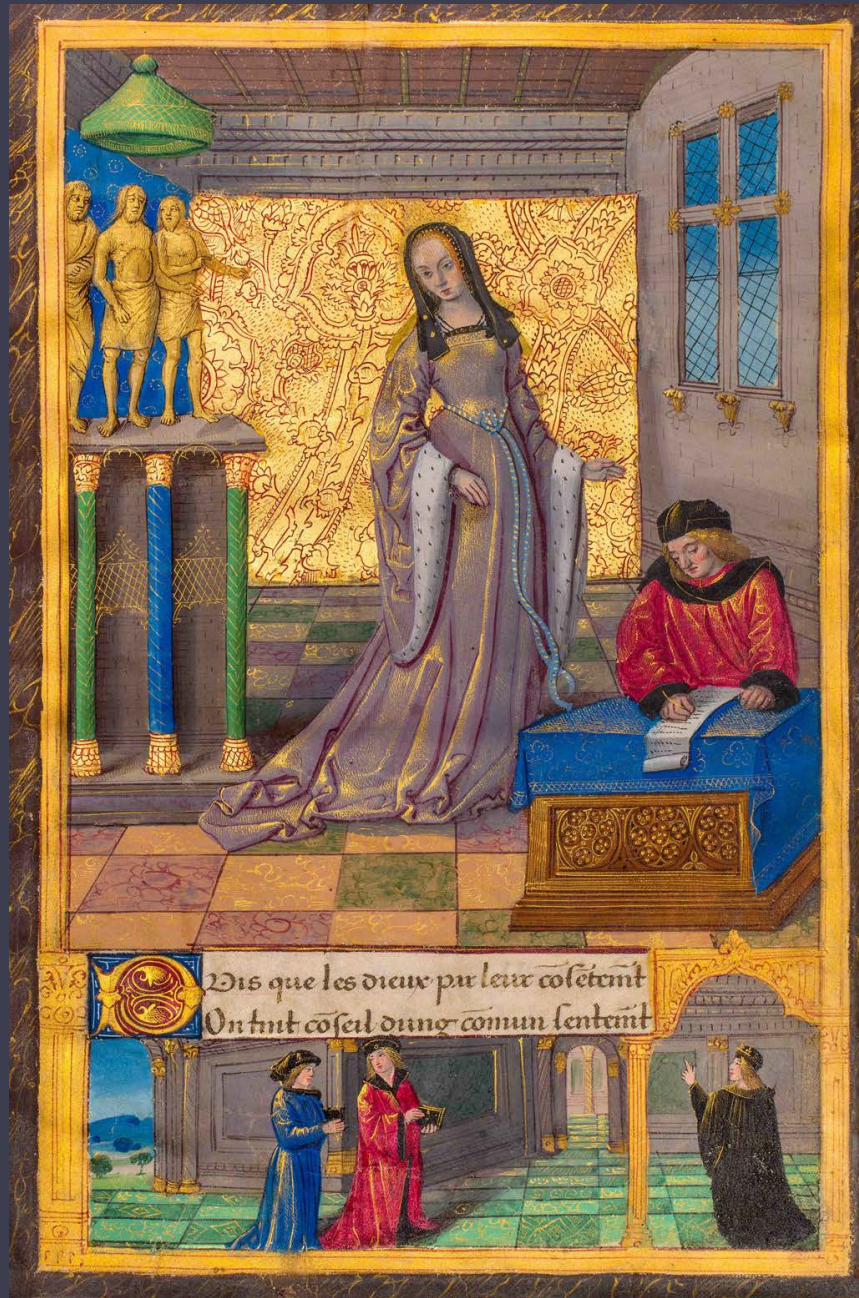 PVis que les dieux par leur cõsẽtem̃t
On tint cõseil dung cõmun sentem̃t